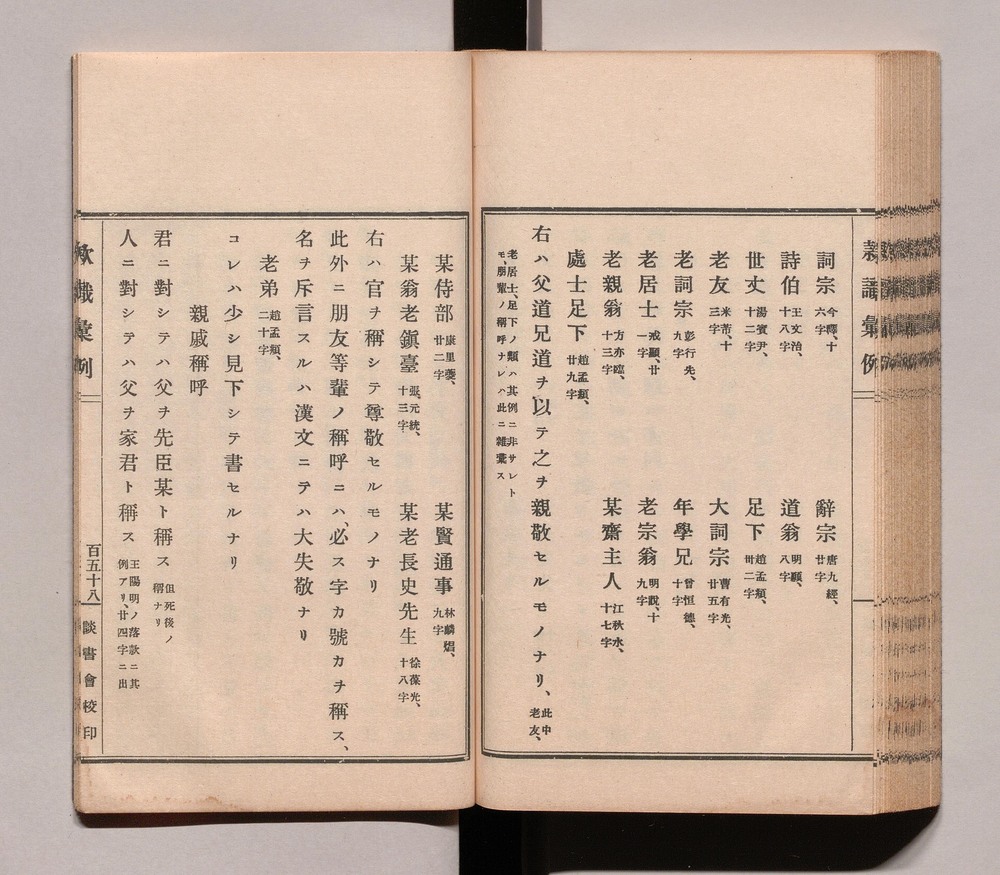 詞宗 今釋、十六字 辭宗 唐九經、廿字
詩伯 王文治、十八字 道翁 明顯、八字
世丈 湯賓尹、十二字 足下 趙孟頫、卌二字
老友 米芾、十三字 大詞宗 曹有光、廿五字
老詞宗 彭行先、九字 年學兄 曾恒德、十字
老居士 戒顯、廿一字 老宗翁 明說、十九字
老親翁 方亦臨、十三字 某齋主人 江秋水、十七字
處士足下 趙孟頫、廿九字
右ハ父道兄道ヲ以テ之ヲ親敬セルモノナリ、此中老友、
老居士、足下ノ類ハ其例ニ非サレト
モ、朋輩ノ稱呼ナレハ此ニ雜載ス
某侍部 康里巙、廿二字 某賢通事 林麟焻、九字
某翁老鎭臺 張元統、十三字 某老長史先生 徐葆光、十八字
右ハ官ヲ稱シテ尊敬セルモノナリ
此外ニ朋友等輩ノ稱呼ニハ、必ス字カ號カヲ稱ス、
名ヲ斥言スルハ漢文ニテハ大失敬ナリ
老弟 趙孟頫、二十字
コレハ少シ見下シテ書セルナリ
親戚稱呼
君ニ對シテハ父ヲ先臣某ト稱ス 但死後ノ稱ナリ
人ニ對シテハ父ヲ家君ト稱ス 王陽明ノ落款ニ其例アリ、廿四字ニ出
款識彙例
百五十八
談書會校印